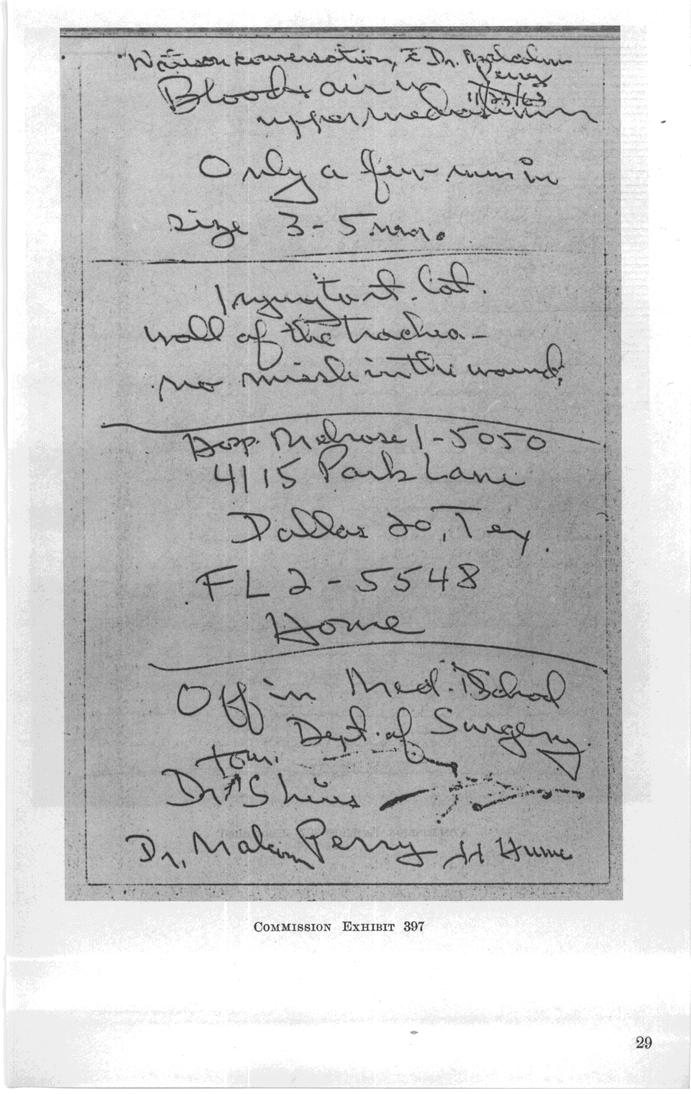 conversation c̄ Dr. Malcolm
Perry
11/23/63
Blood & air in
upper mediastinum
Only a few mm in
size 3-5 mm.
Trying to lat.
wall of the trachea -
no missle in the wound,
Hosp. Melrose 1-5050
4115 Park Lane
Dallas 20, Tex.
FL 2-5548
Home
Off in Med. School
Dept. of Surgery
Tom.
Dr. Shires
Dr. Malcom Perry JJ Hume
COMMISSION EXHIBIT 397
29